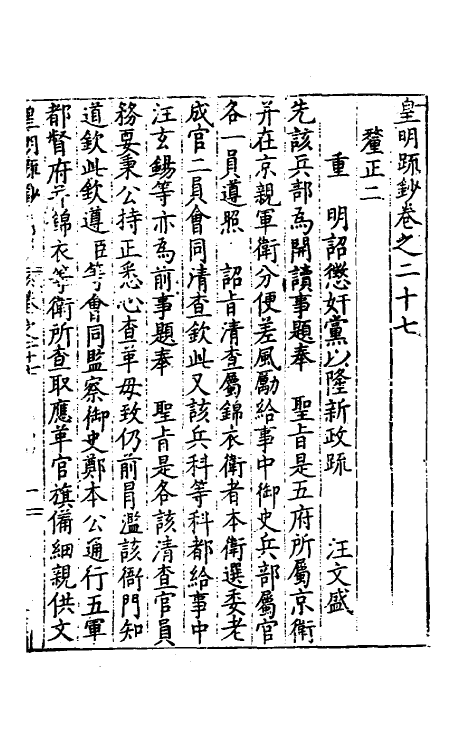 皇明疏鈔卷之二十七
釐正二
重　明詔懲奸黨以隆新政疏　　汪文盛
先該兵部為開讀事題奉　聖旨是五府所屬京衛
并在京親軍衛分便差風勵給事中御史兵部屬官
各一員遵照　詔旨清查屬錦衣衛者本衛選委老
成官二員會同清查欽此又該兵科等科都給事中
汪玄錫等亦為前事題奉　聖旨是各該清查官員
務要秉公持正悉心查革毋致仍前冒濫該衙門知
道欽此欽遵臣等會同監察御史鄭本公通行五軍
都督府并錦衣等衛所查取應革官旗備細親供文
皇明疏鈔